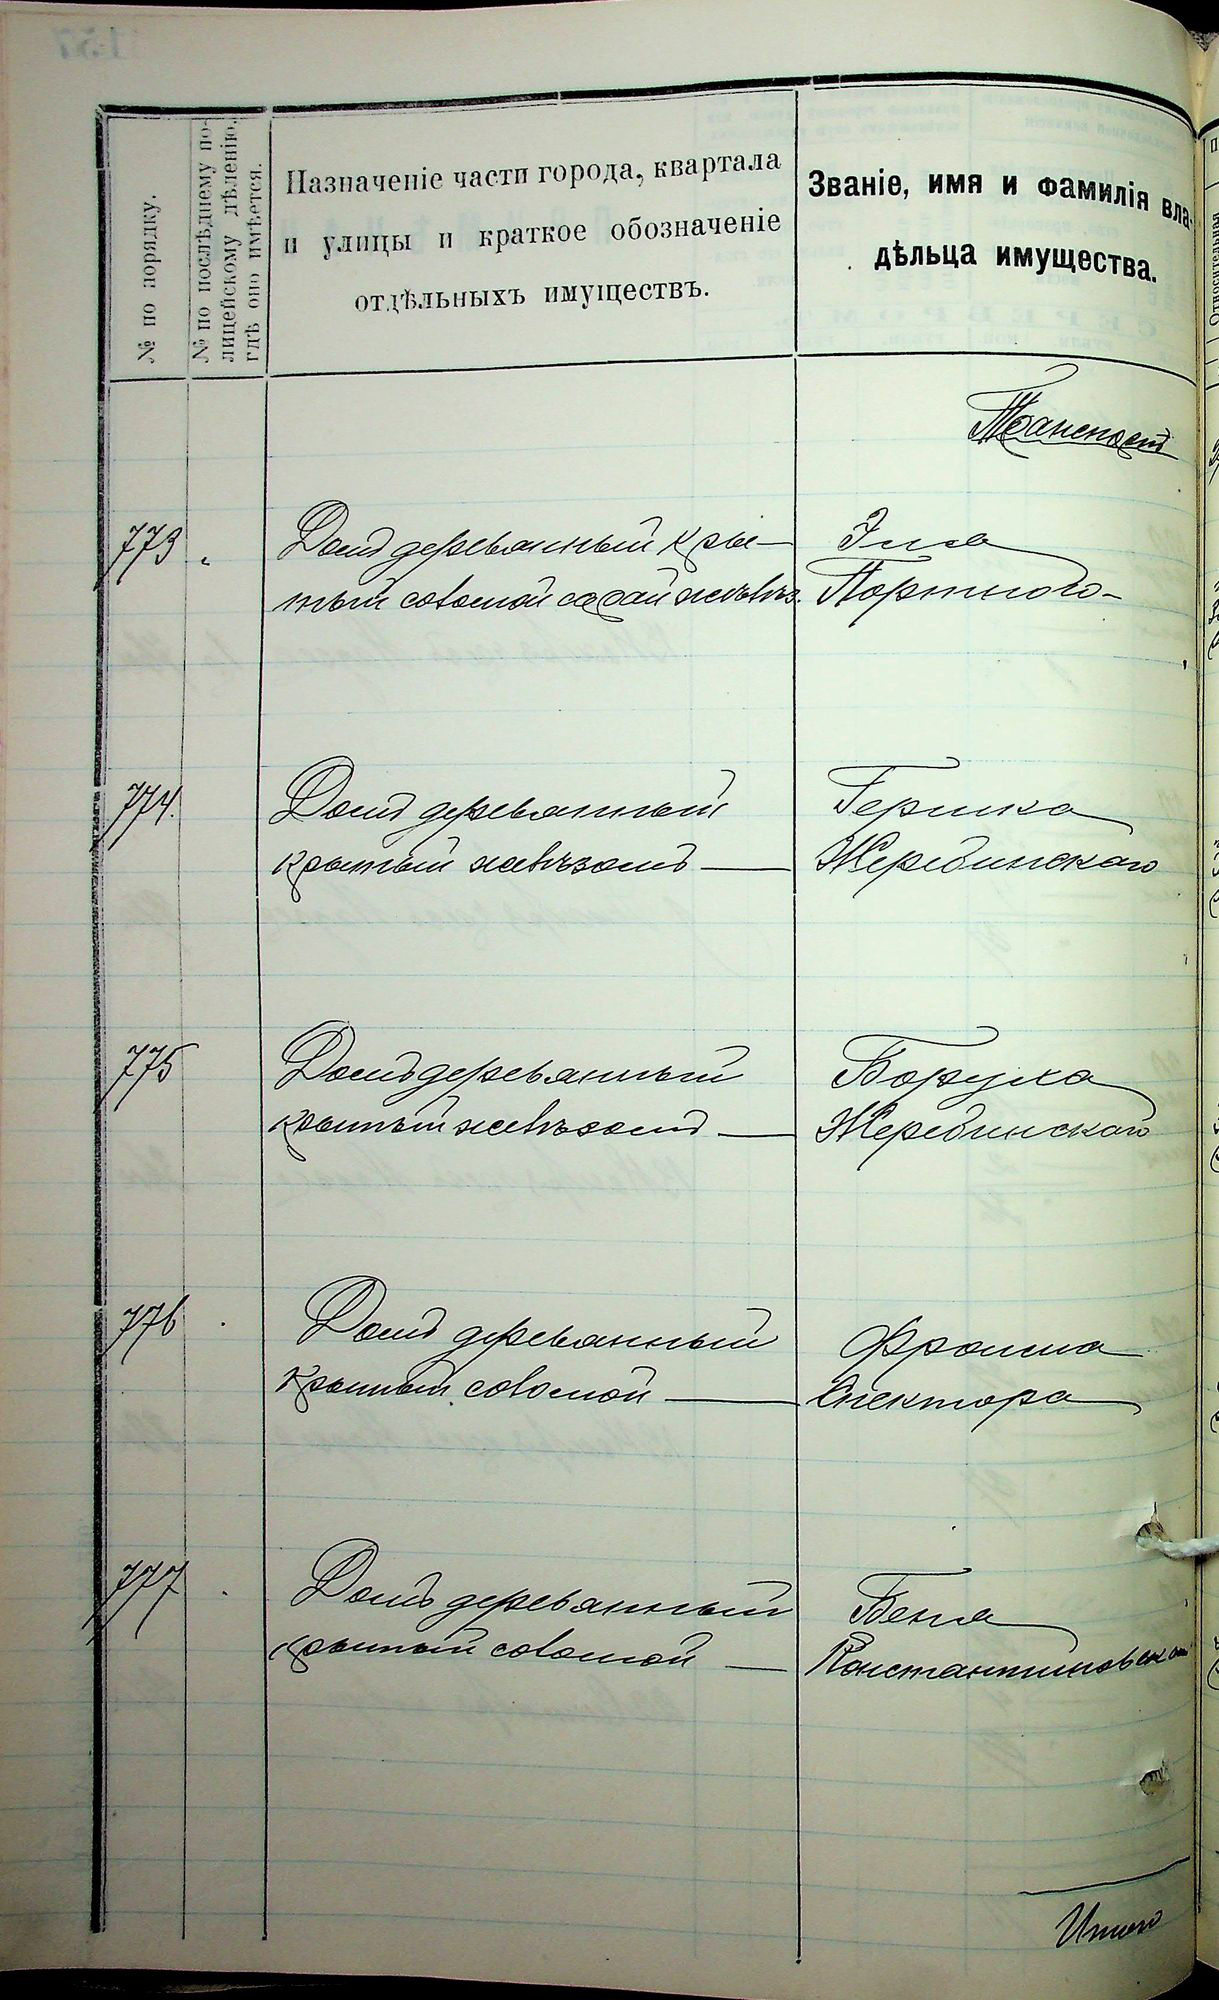 № по порядку.
№ по послѣднему по-
лицейскому дѣленію,
гдѣ оно имѣется.
Назначеніе части города, квартала
и улицы и краткое обозначеніе
отдѣльныхъ имуществъ.
Званіе, имя и фамилія вла-
дѣльца имущества.
Транспортъ
773
Домъ деревянный кры-
тый соломой сарай желѣз.
Эля
Портного
774.
Домъ деревянный
крытый желѣзомъ
Гершка
Жеребинскаго
775
Домъ деревянный
крытый желѣзомъ
Боруха
Жеребинскаго
776
Домъ деревянный
крытый соломой
Фроима
Спектора
777
Домъ деревянный
крытый соломой
Беня
Константиновскаго
Итого